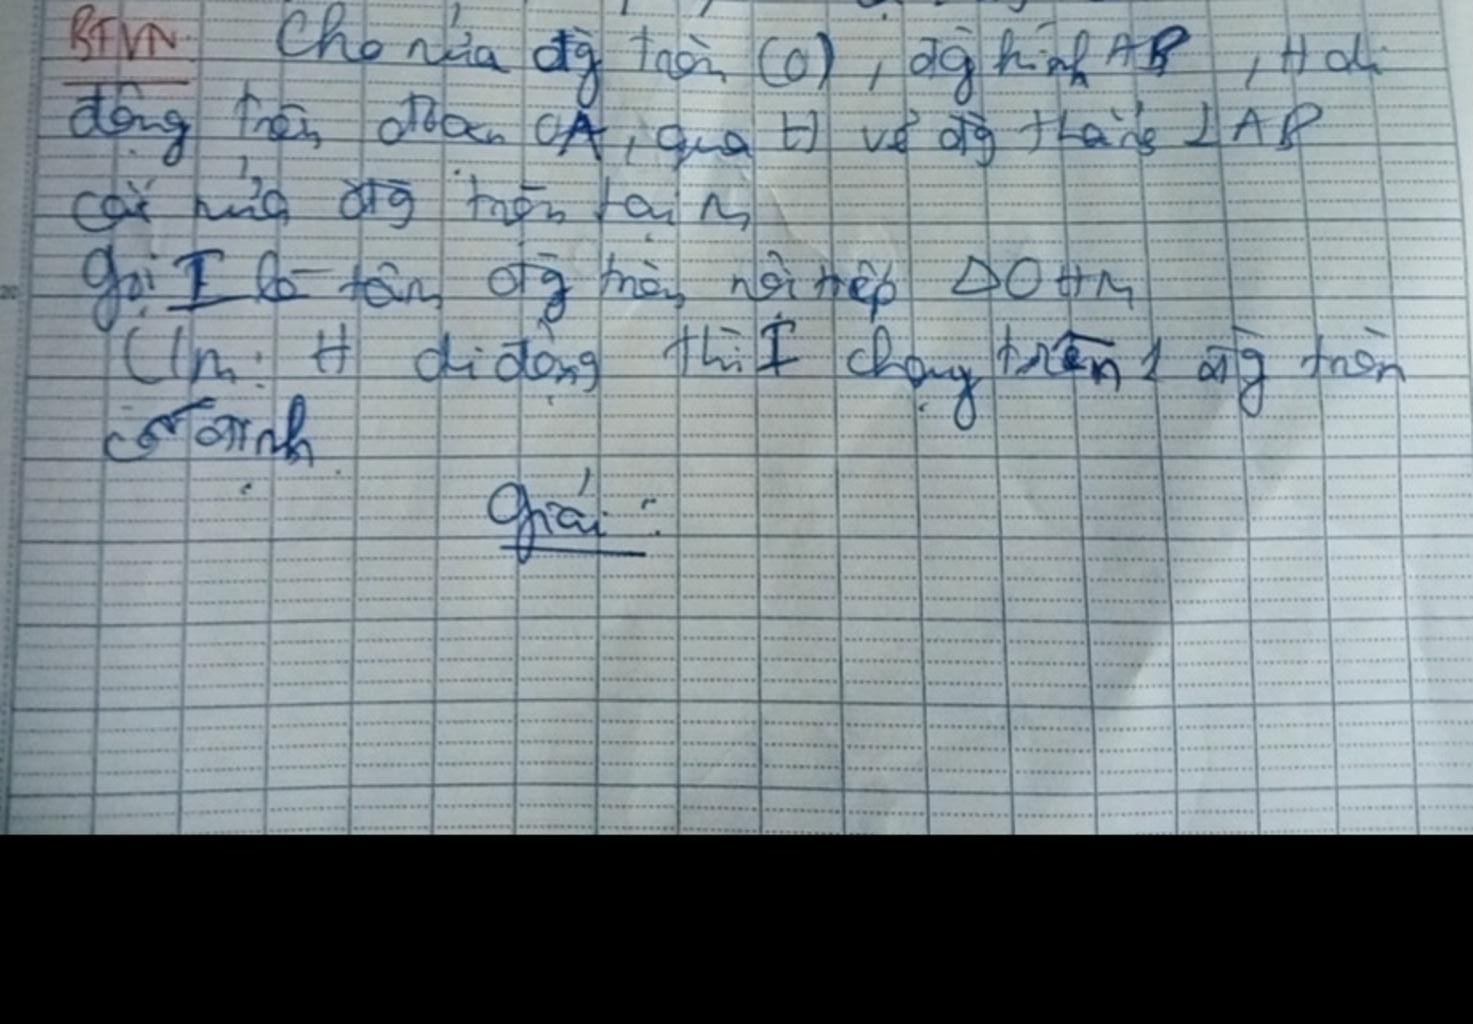 BTVN Cho nửa đg̀ tròn (O), đg̀ kính AB, H di
động trên đoạn OA, qua H vẽ đg̀ thẳng ⊥ AB
cắt nửa đg̀ tròn tại M
Gọi I là tâm đg̀ tròn nội tiếp ΔOHM
C/m: H di động thì I chạy trên 1 đg̀ tròn
cố định
Giải: